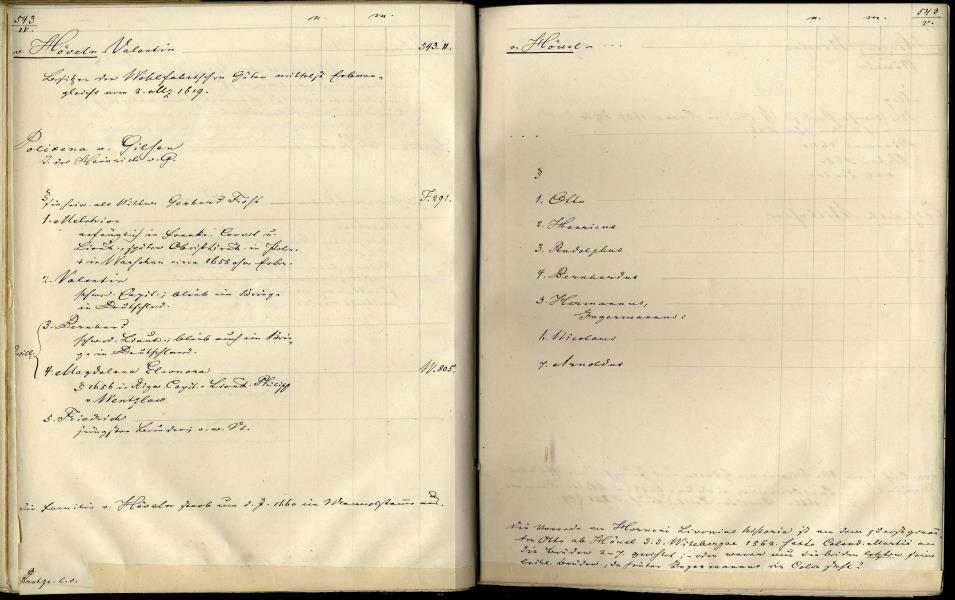 543
IV.
n. m.
v. Höveln Valentin 543. II.
Besitzer der Wohlfahrtschen Güter mittelst Erbver-
gleichs vom 2. 1619.
Polixena v. Gilsen
T. des Heinrich v. G.
als Wittwe Gerhard F. 291.
1. Melchior
anfänglich in Cornet u.
Lieut., später Obristlieut. in Poln.
† in Warschau circa 1656 ohne Erben.
2. Valentin
schwed. Capit.; blieb im Kriege
in Deutschland.
3. Bernhard
schwed. Lieut.; blieb auch im Krie-
ge in Deutschland.
4. Magdalena Eleonora W. 805.
1656 in Riga Capit. Lieut. Philipp
v. Wentzlaw
5. Friedrich
jüngster Bruder;
die Familie v. Höveln starb um d. J. 1660 im Mannsstamm aus.
543
V.
n. m.
v. Hövel - ...
...
1. Otto
2. Henricus
3. Rudolphus
4. Bernhardus
5. Hermannus,
Ingermannus:
6. Nicolaus
7. Arnoldus
Die Vorrede zu Horneri Livoniae historia ist von dem
Otto ab Hövel d. d. Witebergae 1562. sexto Calend. Martii an
die Brüder 2-7 gerichtet; - oder waren nur die beiden letzten seine
Brüder, da früher Ingermannus ein Colon steht?